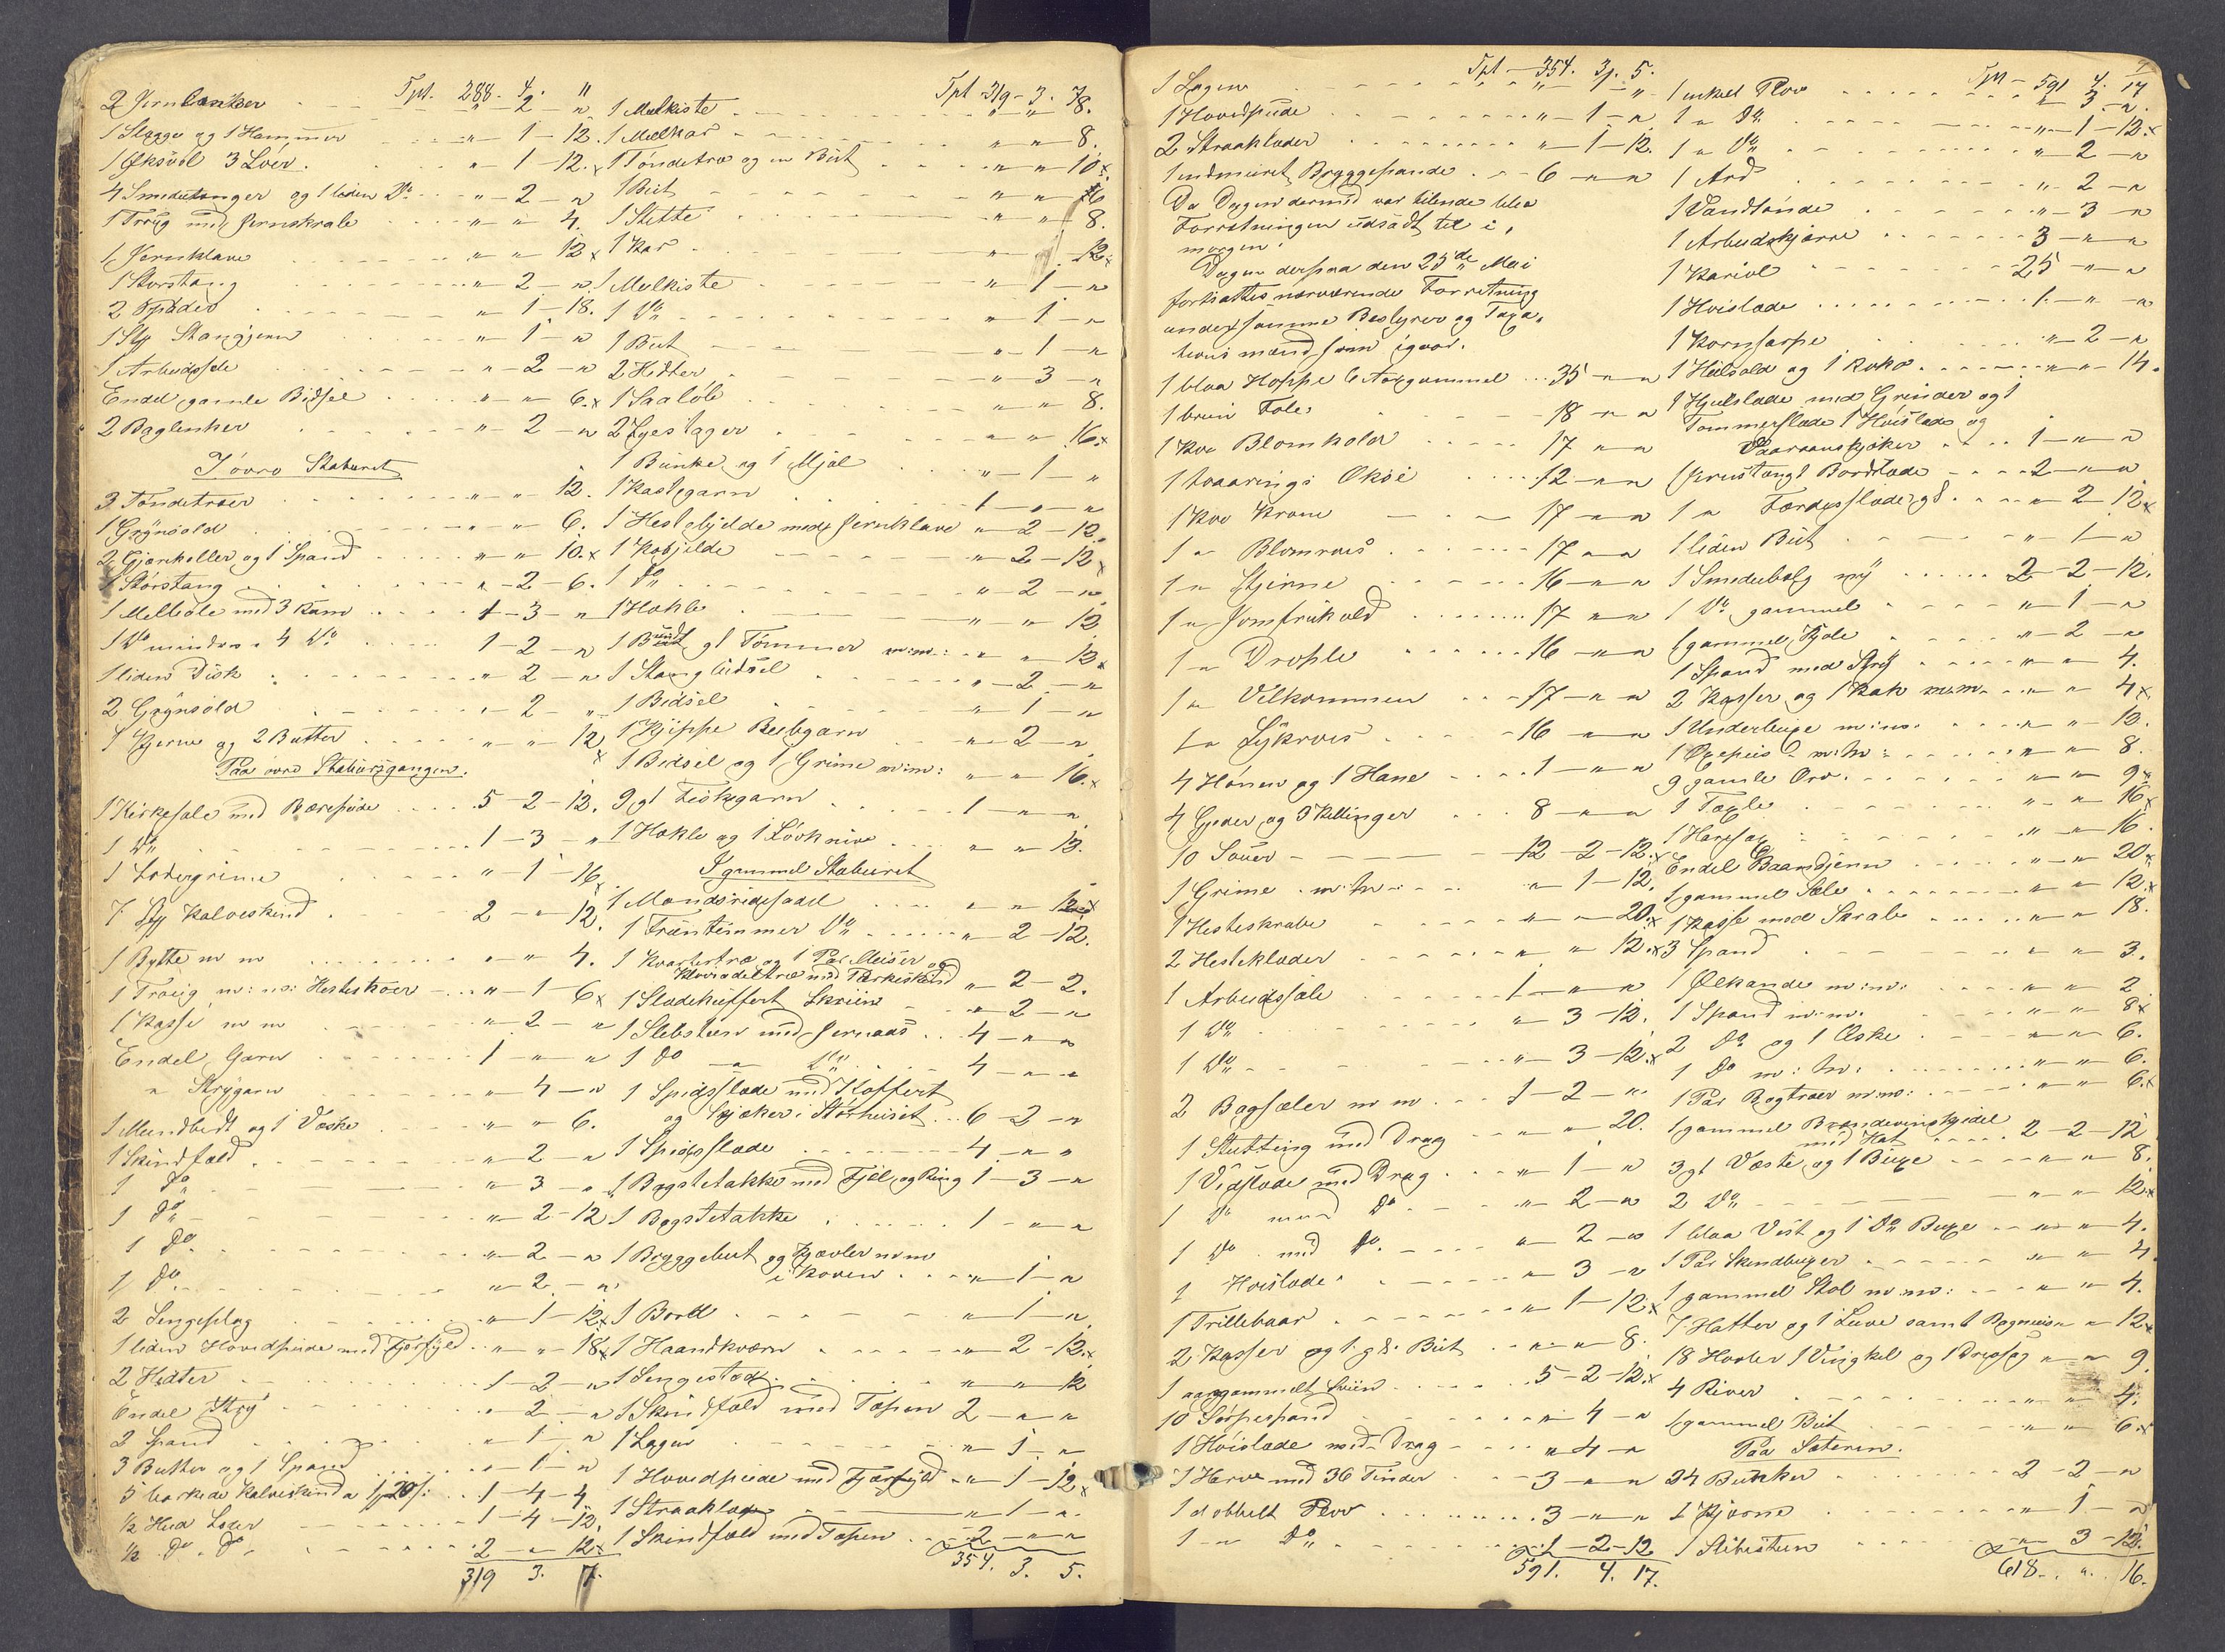 Tpt. 288. 4. "
2 Jernlænker " 2 - "
1 Slægge og 1 Hammer " - 1 - 12.
1 3 Lóer. " 1 - 12. x
4 Smedetænger og 1 liden Do " - 2 - "
1 Traug med Jernskrab " " 4.
1 Jernklave " " 12 x
1 Storstang " - 2 - "
2 Spader " 1 - 18.
1 Stk Stangjern " - 1 - "
1 Arbeidssele " - 2 - "
Endel gamle Bidsel " " 6. x
2 Baglenker " - 2 - "
I óvre Staburet
3 Tøndetræer " " 12.
1 Grynsold " " 6.
2 og 1 Spand " " 10. x
1 Storstang " - 2 - 6.
1 med 3 Rum 1 - 3 - "
1 Do mindre 4 Do 1 - 2 - "
1 liden Disk " 2 - "
2 Grynsold " - 2 - "
1 Kjerne og 2 Butter " " 12 x
Paa óvre Stabursgangen.
1 Kirkesele med Bærepude 5 - 2 - 12.
1 Do 1 - 3 - "
1 Lædergrime " 1 - 16 x
7 Stk Kalveskind 2 - " 12.
1 Bøtte m m " " 4.
1 Traug m: m: Hesteskoer " - 1 - 6 x
1 Kasse m m " - 2 - "
Endel Garn 1 - " - "
" Strygarn " - 4 - "
1 Mundbidt og 1 Væske " " 6.
1 Skindfeld " - 2 - "
1 Do " - 3 - "
1 Do " - 2 - 12
1 Do " - 2 - "
1 Do " - 2 - "
2 Sengeplag " - 1 - 12 x
1 liden Hovedpude med Fjærfyld " - " 18 x
2 Hidter 1 - 2 - "
Endel Stry " - 2 - "
2 Spand " 1 - "
3 Butter og 1 Spand " - 1 - "
5 barkede Kalveskind a 1 20 1 - 4 - 4
1/2 Hud Læder 1 - 4 - 12.
1/2 Do Do 2 - " 12 x
319 3. 7.
Tpt 319 - 3. 7
1 Melkiste " " 8.
1 Melkar " " 8.
1 Tóndetræ og en Bút " " 10 x
1 Bút " " 16
1 Stette " " 8.
1 Kar " 12 x
1 Melkiste " 1 - "
1 Do " - 1 - "
1 But " - 1 - "
2 Hidter " 3 - "
1 Saaløb " " 8.
2 " " 16. x
1 Bunke og 1 " - 1 - "
1 Kastegarn 1 - " - "
1 Hestebjelde med Jernklave " 2 - 12
1 Kobjelde " 2 - 12 x
1 Do " - 2 - "
1 Hakke " " 12
1 Bundt gl Tómmer m:m: " " 12 x
1 Stangbidsel " - 2 - "
1 Bidsel " - 1 - "
1 Kjippe " 2 - "
1 Bidsel og 1 Grime m:m: " " 16. x
9 gl Fiskegarn 1 - " - "
1 Hakke og 1 Lóvkniv " " 12.
I gammel Staburet
1 Mandsridesadel " " 12 x
1 Fruentimmer Do " 2 - 12.
1 Kvarterstræ og 1 Par Meiser og
med Parkeskind " - 2 - 2.
1 Sladekuffert Skriin " - 2 - "
1 Slebsteen med Jernaas 4 - " - "
1 Do " Do 4 - " - "
1 Spidsslæde med Koffert
og Skjæker i Stórhuset 6 - 2 - "
1 Spidsslæde 4 - " - "
1 Bagstetakke med Fjæl og Ring 1 - 3 - "
1 Bagstetakke 1 - " - "
1 Bryggebut og Kjævler m m
i Koven " - 1 - "
1 Bord " - 1 - "
1 Haandkværn " 2 - 12. x
1 Sengested " " 12
1 Skindfeld med Tæpen 2 - " - "
1 Lagen " 1 - "
1 Hovedpude med Fjærfyld " 1 - 12 x
1 Straaklæde " - 1 - "
1 Skindfeld med Tæpen 2 - " - "
354. 3. 5.
Tpt - 354. 3. 5.
1 Lagen " - 1 - "
1 Hovedpude " - 1 - "
2 Straaklæder " - 1 - 12.
1 indmuret Bryggepande 6 - " - "
Da Dagen dermed var tilende blev
Forretningen udsadt til i
morgen.
Dagen derpaa den 25de Mai
fortsattes nærværende Forretning
under samme Bestyrer og Taxa-
tionsmænd som igaar.
1 blaa Hoppe 6 Aar gammel 35 - " - "
1 brun Fole 18 - " - "
1 Ko Blomkold 17 - " - "
1 toaarings Okse 12 - " - "
1 Ko Krone 17 - " - "
1 " Blomros 17 - " - "
1 " Stjerne 16 - " - "
1 " Jomfrukold 17 - " - "
1 " Drople 16 - " - "
1 " Velkommen 17 - " - "
1 " Lykros 16 - " - "
4 Hóner og 1 Hane 1 - " - "
4 Gjeder og 3 Killinger 8 - " - "
10 Sauer 12 - 2 - 12. x
1 Grime m:m: " 1 - 12.
1 Hesteskrabe " " 20. x
2 Hesteklæder " " 12. x
1 Arbeidssele 1 - " - "
1 Do " 3 - 12.
1 Do " - 3 - 12. x
2 Bagsæler m m 1 - 2 - "
1 Stutting med Drag " " 20.
1 Vedslæde med Drag " - 1 - "
1 Do med Do " - 2 - "
1 Do med Do " - 2 - "
1 Hoislæde " 3 - "
1 Trillebaar " 1 - 12. x
2 Kasser og 1 gl. But " " 8.
1 5 - 2 - 12. x
10 " 4 - "
1 Hóislæde med Drag " 4 - "
1 Harve med 36 Tinder 3 - " - "
1 dobbelt Plov 3 - " - "
1 " Do 1 - 2 - 12
591. 4. 17.
Tpt - 591 4. 17
1 enkel Plov " 3 - "
1 " Do " - 1 - 12. x
1 " Do " - 2 - "
1 Ard " - 2 - "
1 Vandtónde " - 3 - "
1 Arbeidskjærre 3 - " - "
1 Kariol 25 - " - "
1 Hóislæde 1 - " - "
1 Kornharpe " - 2 - "
1 og 1 " " 14.
1 Hjulslæde med Grinder og 1
Tommerslæde 1 Hóislæde og
1 - " - "
1 Jernstang 1 Bordslæde 2 - " - "
1 " Færdesslæde gl. " 2 - 12 x
1 liden But " - 1 - "
1 Smedebelg ny 2 - 2 - 12.
1 Do gammel " 1 - "
1 gammel " - 2 - "
1 Spand med Stry " " 4.
2 Kasser og 1 m:m: " " 4 x
1 m:m: " " 12.
1 m:m: " " 8.
9 gamle Orv " " 9 x
1 " " 16 x
1 " " 16.
Endel Baandjern " " 20 x
1 gammel Sele " " 12. x
1 Kasse med Skrab " " 18.
3 Spand " " 3.
1 Ølkande m:m: " " 2
1 Spand m:m: " " 8 x
2 Do og 1 Æske " " 6.
1 Do m:m: " " 6.
1 Par Bogtræer m:m: " " 6. x
1 gammel Brændevinskjedel
med Hat 2 - 2 - 12
3 gl Væste og 1 Buxe " " 8.
2 Do " " 12 x
1 blaa Vest og 1 Do Buxe " " 4.
1 Par Skindbuxer " " 4
1 gammel Stol m:m: " " 4.
7 Hatter og 1 Luve samt " 12 x
18 Hovler 1 Vinkel og 1 " " 9.
4 River " " 4.
1 gammel But " " 6. x
Paa Sæteren.
24 Bunker 2 - 2 - "
1 Kjærne " 1 - "
1 Slibesteen " 3 - 12.
618. ". 16.